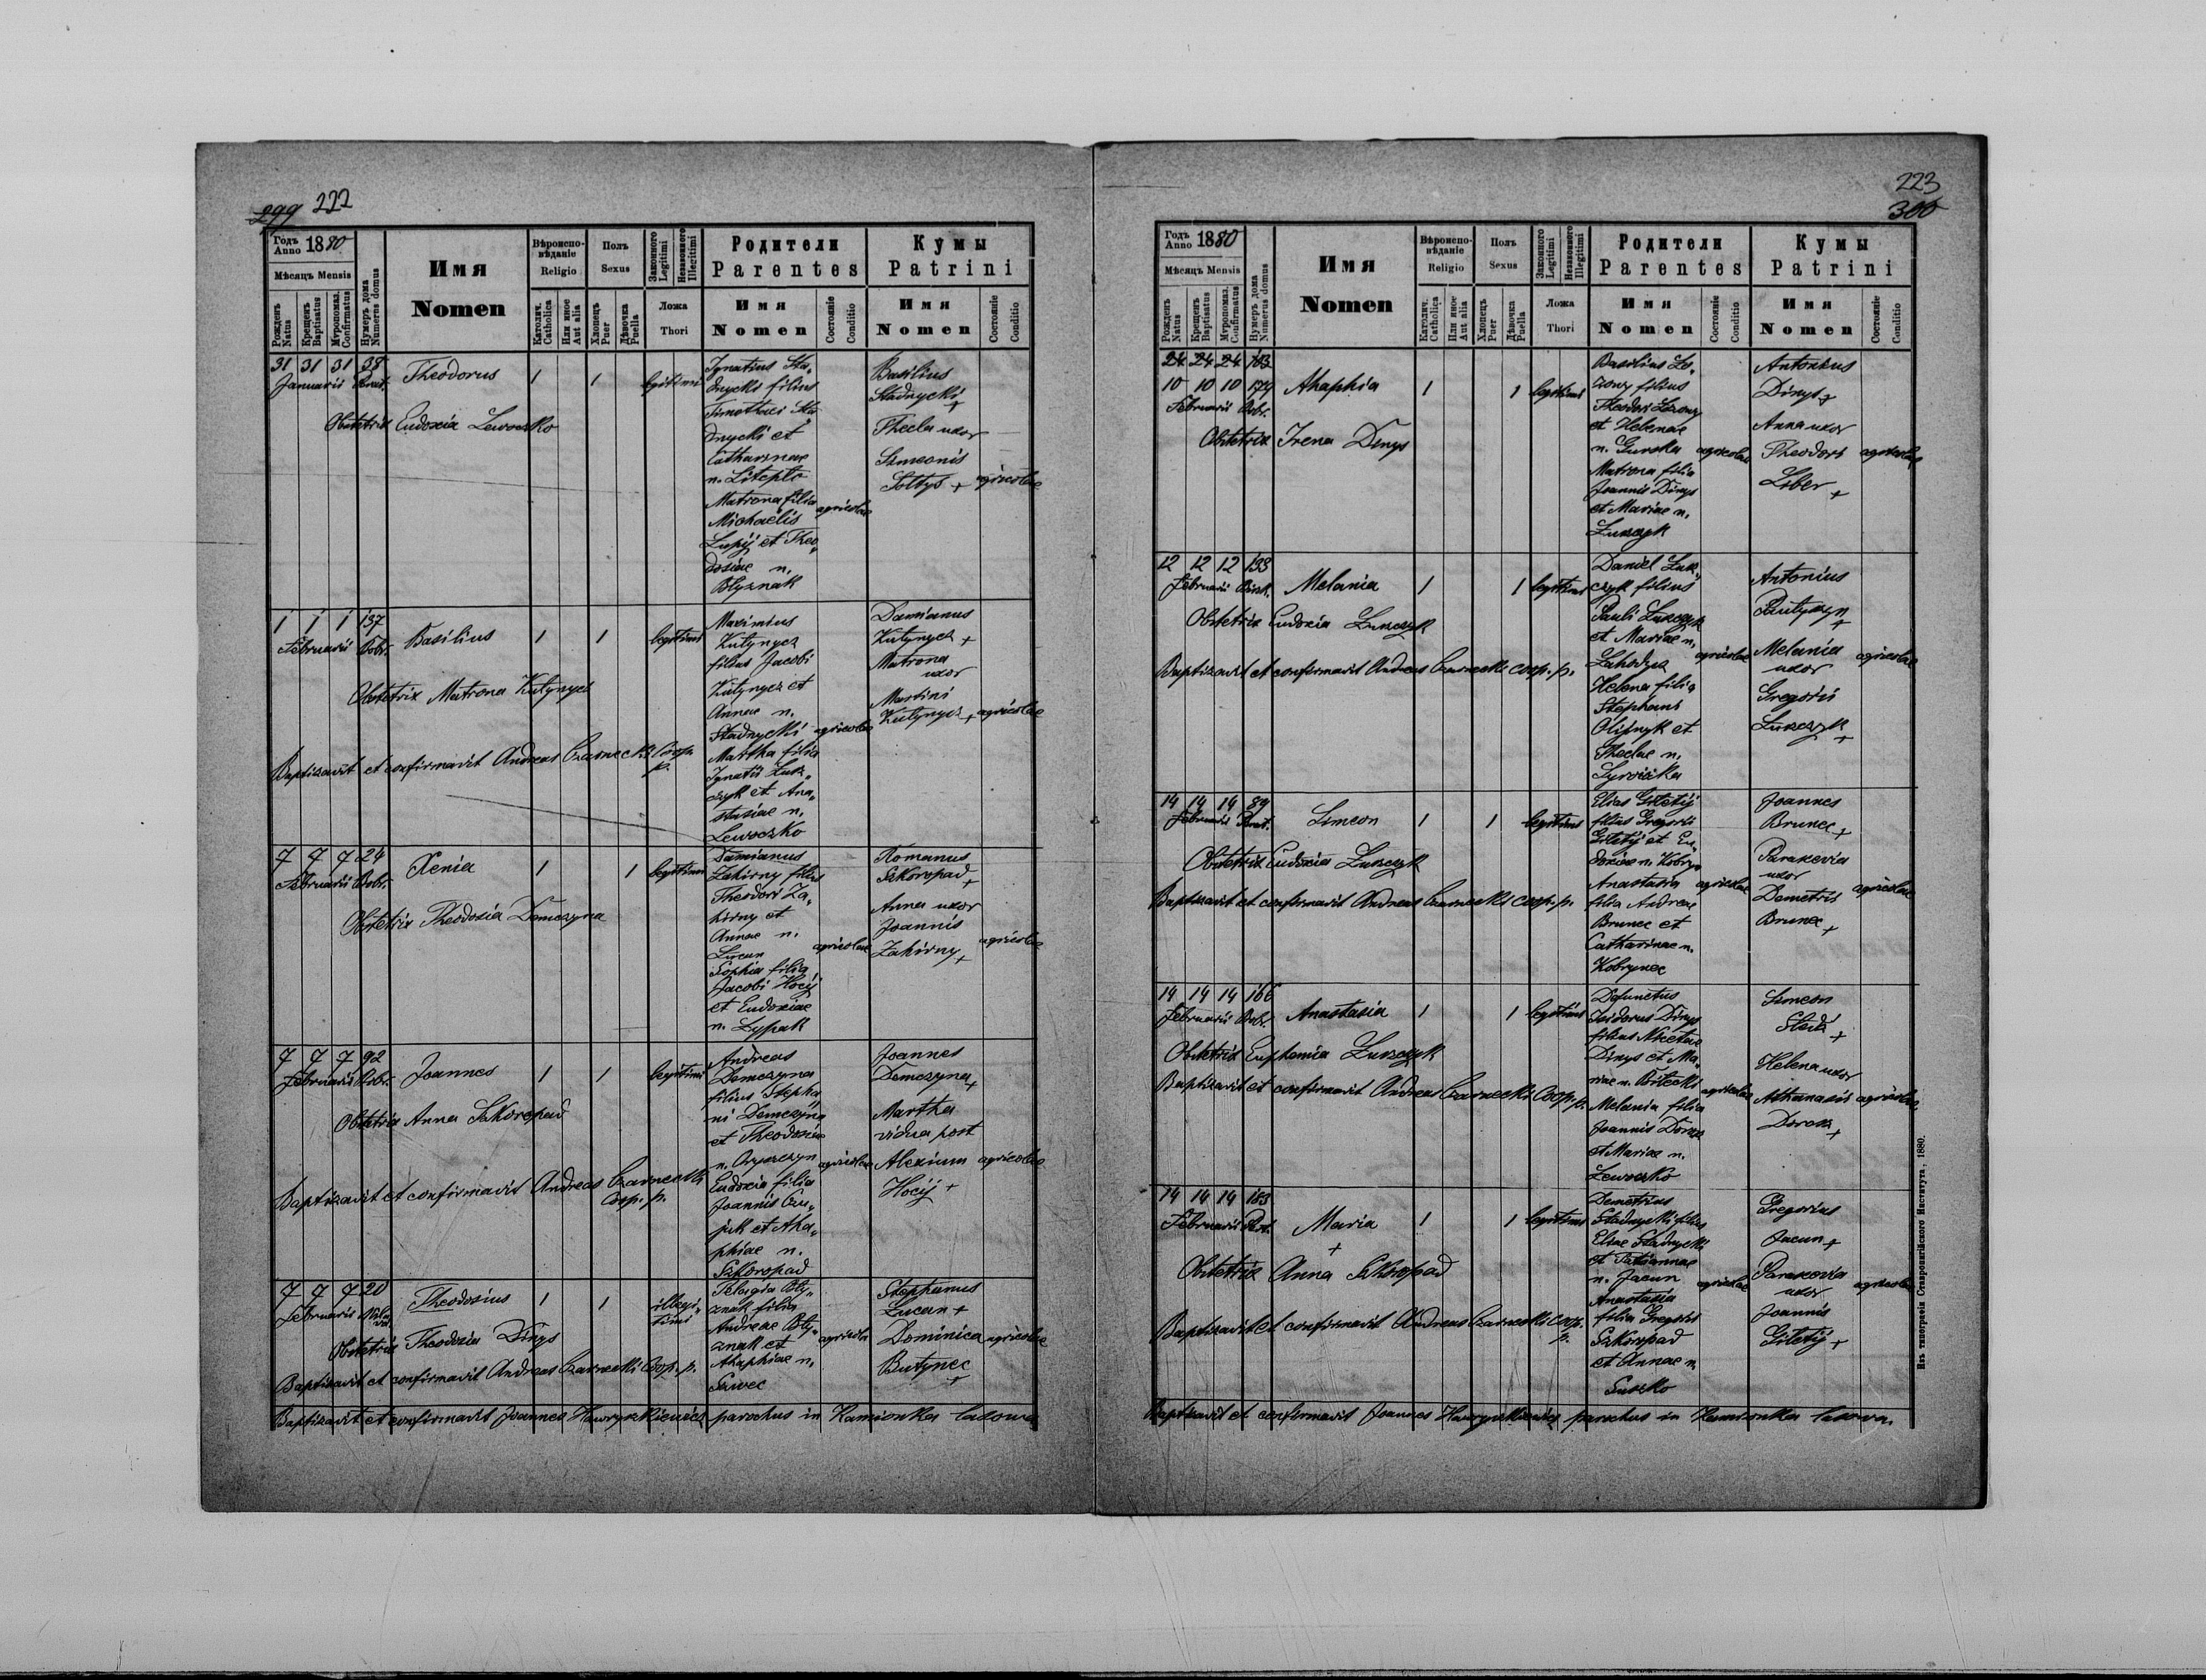 299 222
Годъ Anno 1880
Мѣсяцъ Mensis
Рожденъ Natus
Крещенъ Baptisatus
Мѵропомаз. Confirmatus
Нумеръ дома Numerus domus
Имя
Nomen
Вѣроиспо-
вѣданіе
Religio
Католич. Catholica
Или иное Aut alia
Полъ
Sexus
Хлопецъ Puer
Дѣвочка Puella
Законного Legitimi
Незаконного Illegitimi
Ложа
Thori
Родители
Parentes
Имя
Nomen
Состояніе Conditio
Кумы
Patrini
Имя
Nomen
Состояніе Conditio
31 31 31 38
Januarii
Theodorus 1 1 legitimi
Obstetrix Eudoxia Lewoczko
Ignatius Sta„
dnycki filius
Timothei Sta„
dnycki et
Catharinae
n. Liteplo
Matrona filia
Michaelis
Lupij et Theo„
dosiae n.
Blyznak
agricolae
Basilius
Stadnycki
+
Thecla uxor
Simeonis
Soltys +
agricolae
1 1 1 137
Februarii Dobr.
Basilius 1 1 legitimi
Obstetrix Matrona Kutynycz
Baptisavit et confirmavit Andreas Czarnecki Coop.
p.
Maximus
Kutynycz
filius Jacobi
Kutynycz et
Annae n.
Stadnycki
Martha filia
Ignatii Luk„
czyk et Ana„
stasiae n.
Lewoczko
agricolae
Damianus
Kutynycz +
Matrona
uxor
Martini
Kutynycz +
agricolae
7 7 7 24
Februarii Dobr.
Xenia 1 1 legitimi
Obstetrix Theodosia Demczyna
Damianus
Zahirny filius
Theodori Za„
hirny et
Annae n.
Lucun
Sophia filia
Jacobi Hocij
et Eudoxiae
n. Lypak
agricolae
Romanus
Szkoropad
+
Anna uxor
Joannis
Zahirny +
agricolae
7 7 7 92
Februarii Dobr.
Joannes 1 1 legitimi
Obstetrix Anna Szkoropad
Baptisavit et confirmavit Andreas Czarnecki
Coop. p.
Andreas
Demczyna
filius Stepha„
ni Demczyna
et Theodosiae
n.
Eudoxia filia
Joannis Cu„
puk et Aha„
phiae n.
Szkoropad
agricolae
Joannes
Demczyna
+
Martha
vidua post
Alexium
Hocij +
agricolae
7 7 7 20
Februarii
Theodosius 1 1 illegi„
timi
Obstetrix Theodosia Dinys
Baptisavit et confirmavit Andreas Czarnecki Coop. p.
Pelagia Bly„
znak filia
Andreae Bly„
znak et
Ahaphiae n.
Szwec
agricola
Stephanus
Lucun +
Dominica
Butynec
+
agricolae
Baptisavit et confirmavit Joannes Hawryszkiewicz parochus in Kamionka lasowa
223
300
Годъ Anno 1880
Мѣсяцъ Mensis
Рожденъ Natus
Крещенъ Baptisatus
Мѵропомаз. Confirmatus
Нумеръ дома Numerus domus
Имя
Nomen
Вѣроиспо-
вѣданіе
Religio
Католич. Catholica
Или иное Aut alia
Полъ
Sexus
Хлопецъ Puer
Дѣвочка Puella
Законного Legitimi
Незаконного Illegitimi
Ложа
Thori
Родители
Parentes
Имя
Nomen
Состояніе Conditio
Кумы
Patrini
Имя
Nomen
Состояніе Conditio
24 24 24 183
10 10 10 179
Februarii Dobr.
Ahaphia 1 1 legitimi
Obstetrix Irena Dinys
Basilius Lo„
zowy filius
Theodori Lozowy
et Helenae
n. Gurska
Matrona filia
Joannis Dinys
et Mariae n.
Lukczyk
agricolae
Antonius
Dinys +
Anna uxor
Theodori
Liber +
agricolae
12 12 12 133
Februarii
Melania 1 1 legitimi
Obstetrix Eudoxia Lukczyk
Baptisavit et confirmavit Andreas Czarnecki coop. p.
Daniel Luk„
czyk filius
Pauli Lukczyk
et Mariae n.
Lahodycz
Helena filia
Stephani
Olijnyk et
Theclae n.
agricolae
Antonius
+
Melania
uxor
Gregorii
Lukczyk
+
agricolae
14 14 14 89
Februarii
Simeon 1 1 legitimi
Obstetrix Eudoxia Lukczyk
Baptisavit et confirmavit Andreas Czarnecki coop. p.
Elias Giletij
filius Gregorii
Giletij et Eu„
doxiae n.
Anastasia
filia Andreae
Brunec et
Catharinae n.
Kobrynec
agricolae
Joannes
Brunec +
Paraxevia
uxor
Demetrii
Brunec
+
agricolae
14 14 14 166
Februarii Dobr.
Anastasia 1 1 legitimi
Obstetrix Euphemia Lukczyk
Baptisavit et confirmavit Andreas Czarnecki Coop. p.
Defunctus
Isidorus Dinys
filius Nicetae
Dinys et Ma„
riae n.
Melania filia
Joannis Dorosz
et Mariae n.
Lewoczko
agricolae
Simeon
+
Helena uxor
Athanasii
Dorosz
+
agricolae
14 14 14 183
Februarii
Maria 1 1 legitimi
+
Obstetrix Anna Szkoropad
Baptisavit et confirmavit Andreas Czarnecki Coop.
p.
Demetrius
Stadnycki filius
Eliae Stadnycki
et Tatiannae
n. Jacun
Anastasia
filia Gregorii
Szkoropad
et Annae n.
Suszko
agricolae
Gregorius
Jacun +
Paraxevia
uxor
Joannis
Giletij +
agricolae
Baptisavit et confirmavit Joannes Hawryszkiewicz parochus in Kamionka lasowa.
Изъ типографіи Ставропигійского Института, 1880.